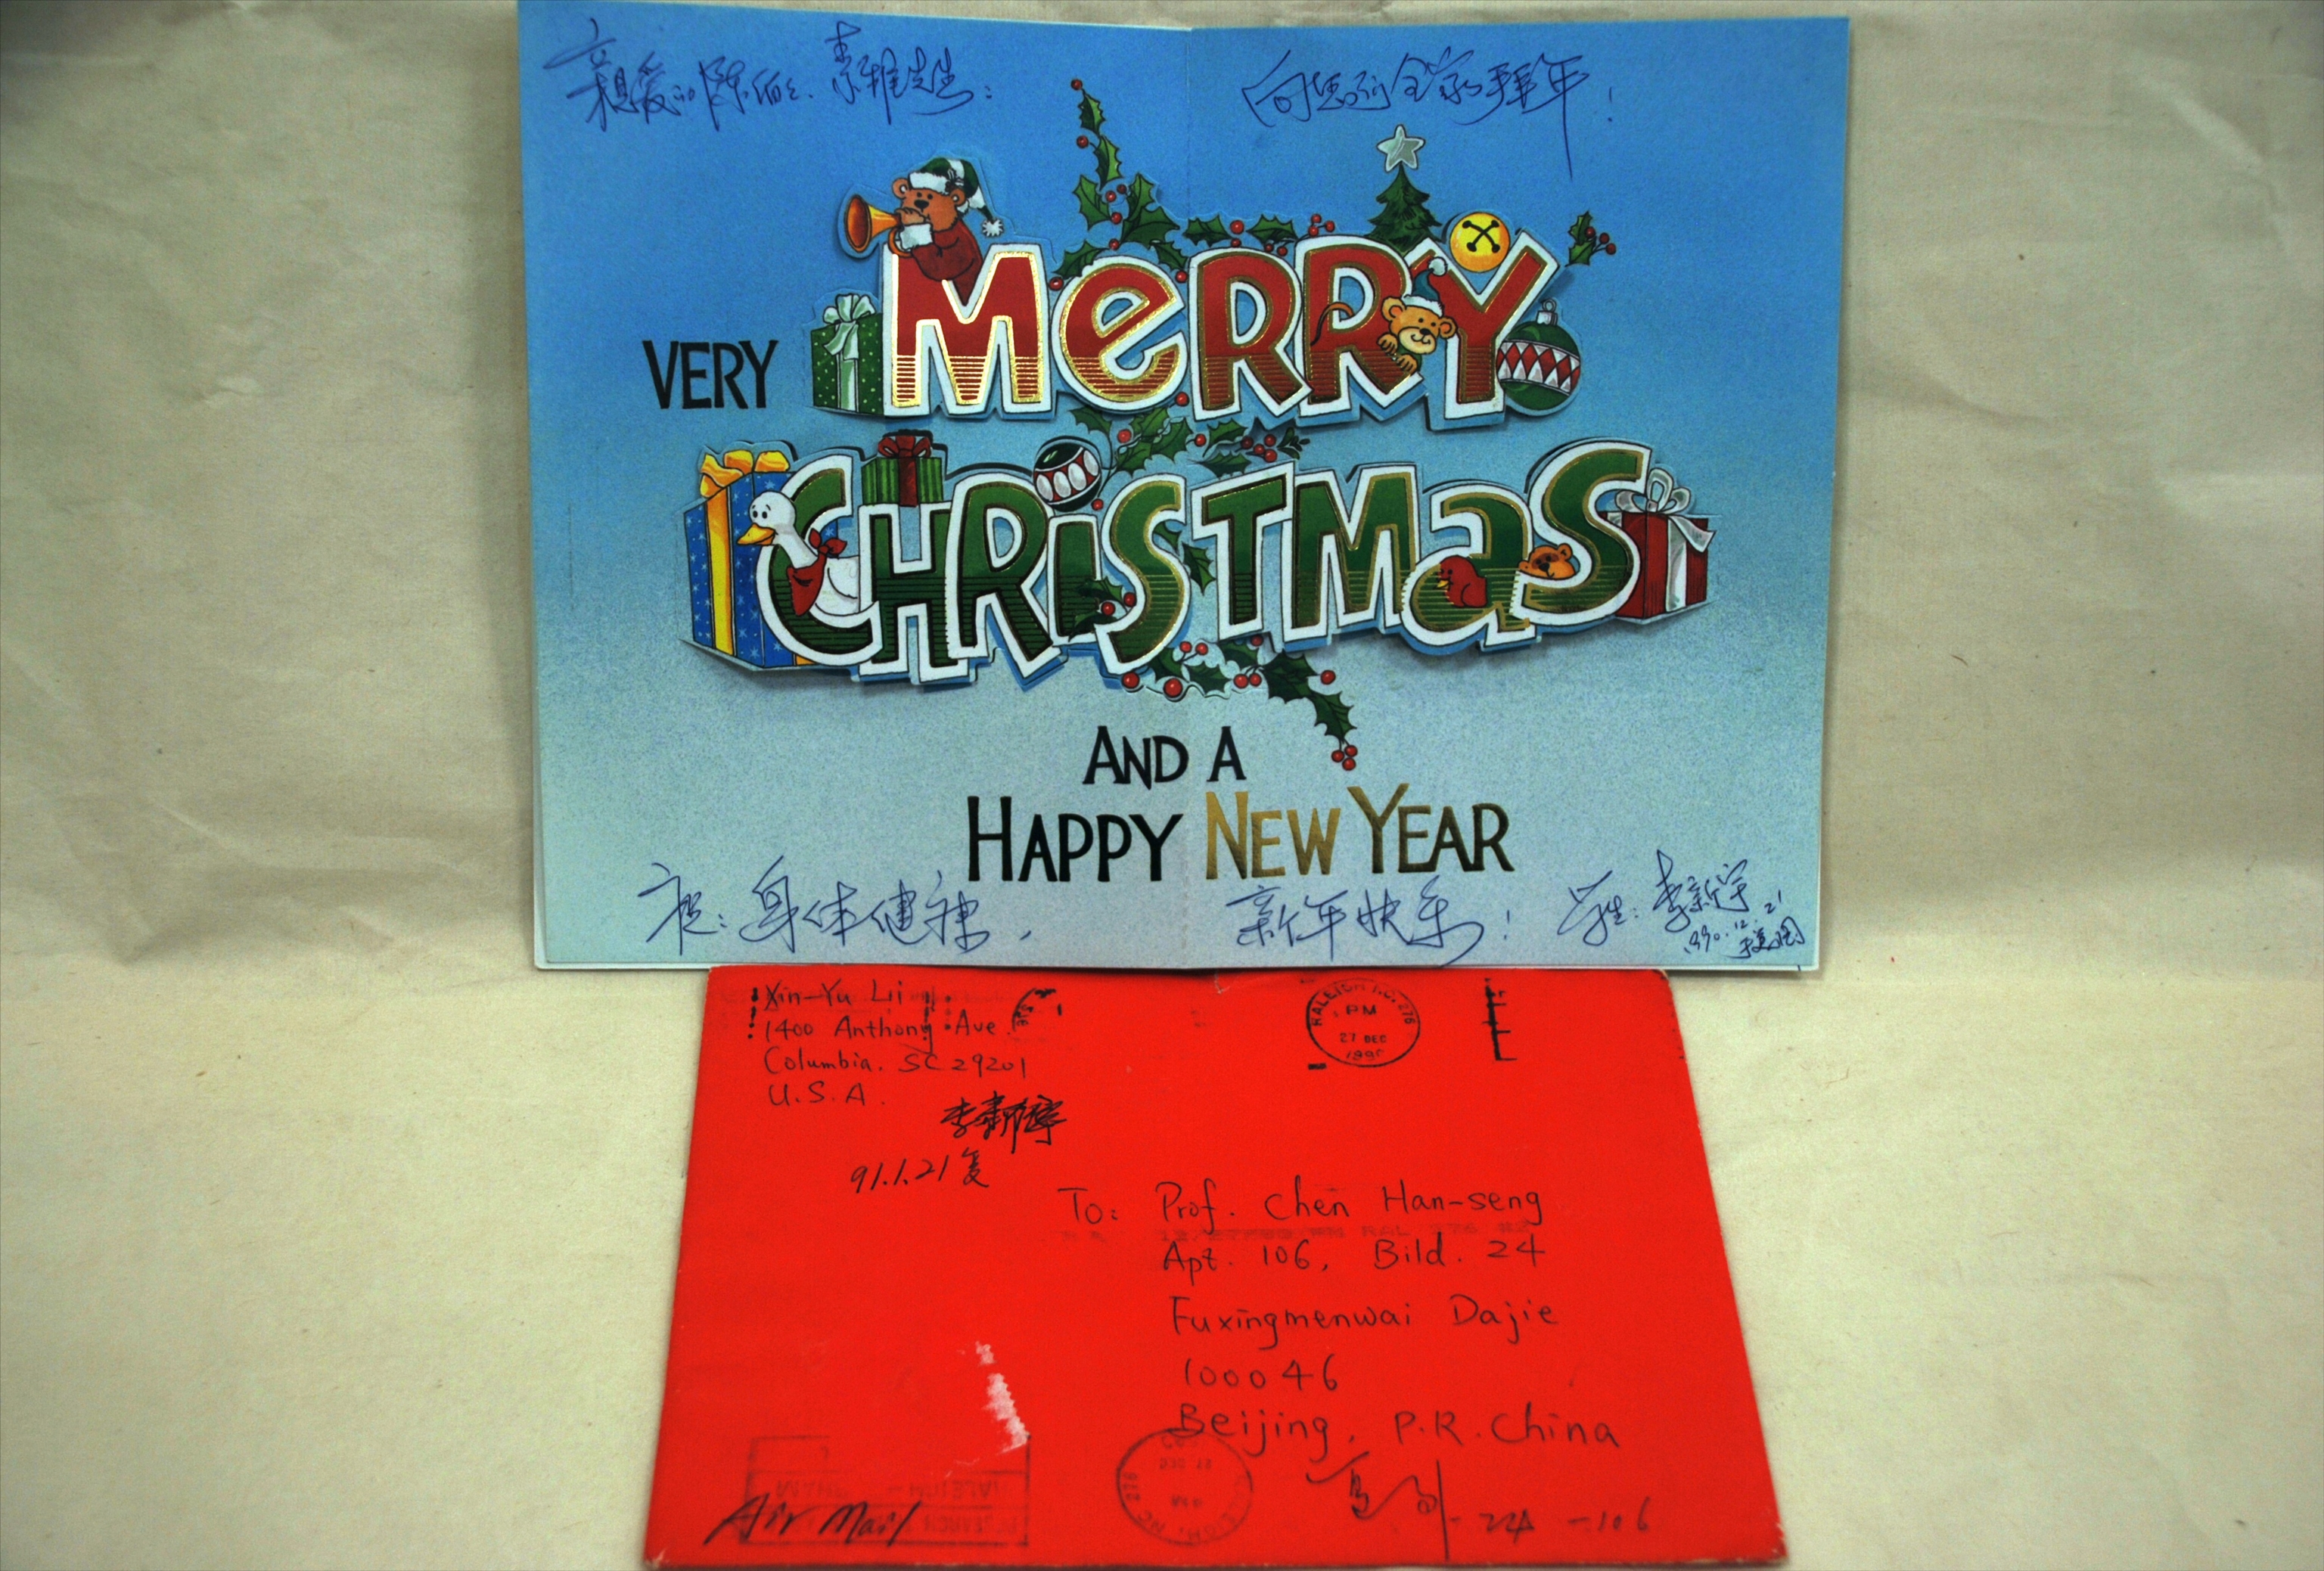 亲爱的陈伯伯、素雅先生:
向您们全家拜年!
VERY MERRY
CHRISTMAS
AND A
HAPPY NEW YEAR
祝:身体健康,
新年快乐!
学生:李新宇
1990.12.21
于美国
Xin-Yu Li
1400 Anthony Ave.
Columbia, SC 29201
U.S.A.
91.1.21复
RALEIGH NC. 276
PM
27 DEC
1990
To: Prof. Chen Han-seng
Apt. 106, Bild. 24
Fuxingmenwai Dajie
100046
Beijing, P.R. China
Air Mail
-24-106